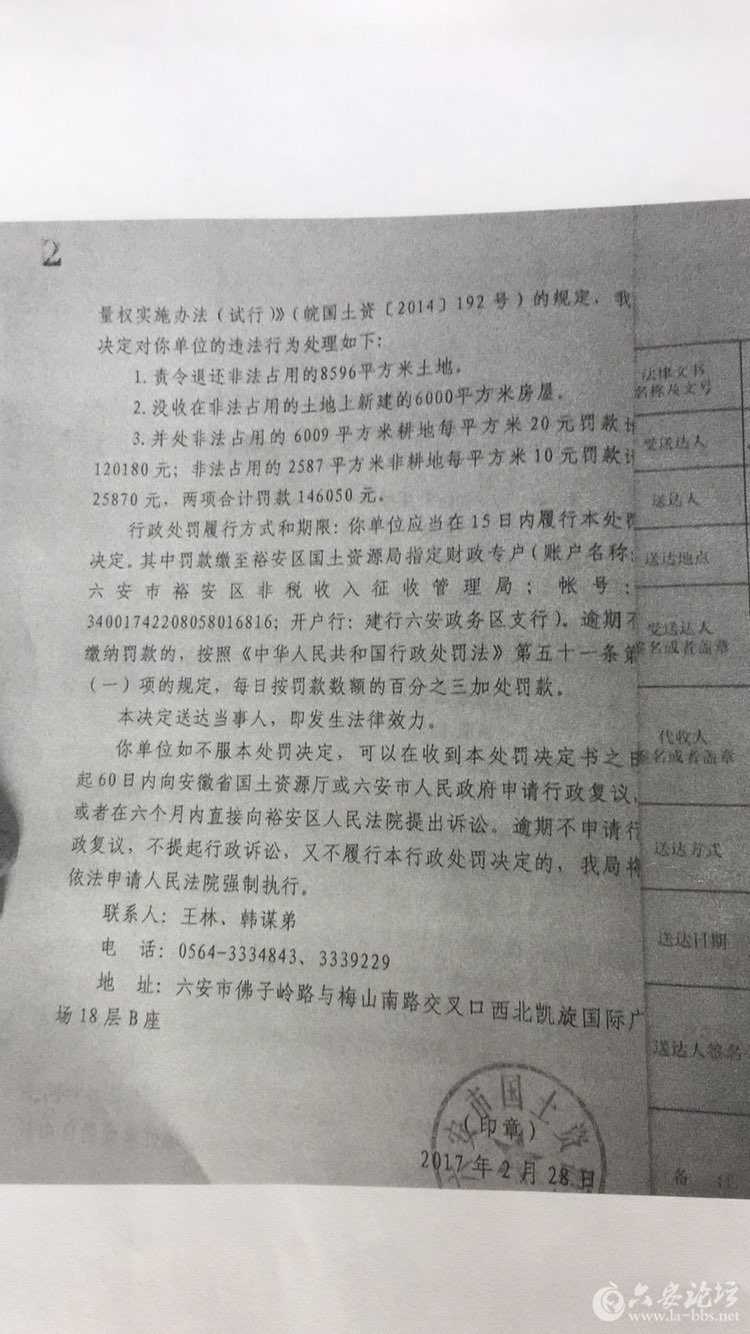 2
量权实施办法（试行）》（皖国土资〔2014〕192号）的规定，我
决定对你单位的违法行为处理如下：
1.责令退还非法占用的8596平方米土地。
2.没收在非法占用的土地上新建的6000平方米房屋。
3.并处非法占用的 6009 平方米耕地每平方米 20 元罚款计
120180 元；非法占用的 2587 平方米非耕地每平方米 10 元罚款计
25870 元，两项合计罚款 146050 元。
行政处罚履行方式和期限：你单位应当在 15 日内履行本处罚
决定。其中罚款缴至裕安区国土资源局指定财政专户（账户名称：
六安市裕安区非税收入征收管理局；帐号：
34001742208058016816；开户行：建行六安政务区支行）。逾期不
缴纳罚款的，按照《中华人民共和国行政处罚法》第五十一条第
（一）项的规定，每日按罚款数额的百分之三加处罚款。
本决定送达当事人，即发生法律效力。
你单位如不服本处罚决定，可以在收到本处罚决定书之日
起 60 日内向安徽省国土资源厅或六安市人民政府申请行政复议，
或者在六个月内直接向裕安区人民法院提出诉讼。逾期不申请行
政复议，不提起行政诉讼，又不履行本行政处罚决定的，我局将
依法申请人民法院强制执行。
联系人：王林、韩谋弟
电 话：0564-3334843、3339229
地 址：六安市佛子岭路与梅山南路交叉口西北凯旋国际广
场 18 层 B 座
安市国土资
（印章）
2017 年 2 月 28 日
法律文书
名称及文号
受送达人
送达人
送达地点
受送达人
签名或者盖章
代收人
签名或者盖章
送达方式
送达日期
送达人签名
备 注
六安论坛
www.la-bbs.net